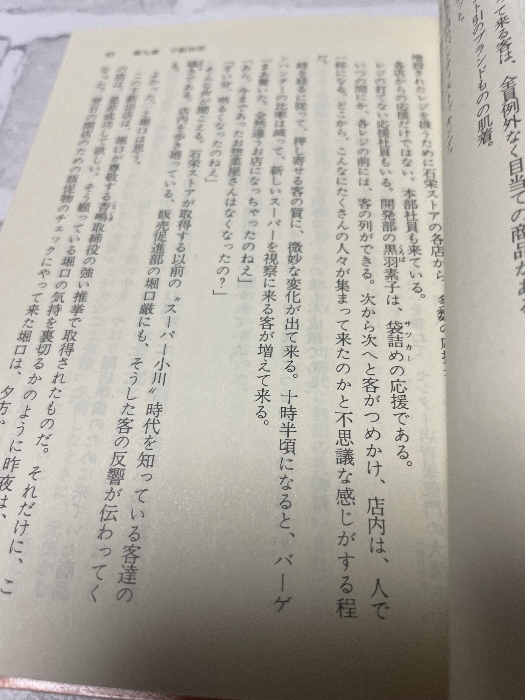 て来る客は、全員例外なく目当ての商品がある
ト引のブランドものの肌着。
増設されたレジを機うために石栄ストアの各店から
各店からの応援だけではない。本部社員も来ている。
レジの打てない応援社員もいる。開発部の黒羽素子は、袋詰めの応援である。
サッカー
いつの間にか、各レジの前には、客の列ができる。次から次へと客がつめかけ、店内は、人で
一杯になる。どこから、こんなにたくさんの人々が集まって来たのかと不思議な感じがする程
時を移るに従って、押し寄せる客の質に、微妙な変化が出て来る。十時半頃になると、バーゲ
ンハンターの比率は減って、新しいスーパーを視察に来る客が増えて来る。
「まあ驚いた。全然違うお店になっちゃったのねえ」
「あら、今まであったお惣菜屋さんはなくなったの？」
「ずい分、明るくなったのねえ」
そんな声が聞こえる。石栄ストアが取得する以前の〝スーパー小川〟時代を知っている客達の
声である。店内を歩き廻っている、販売促進部の堀口厳にも、そうした客の反響が伝わってく
る。
よかった、と堀口は思う。
この王野店は、堀口が尊敬する香嶋取締役の強い推挙で取得されたものだ。それだけに、こ
の店は、是非成功して欲しい。そう願っている堀口の気持を裏切るかのように昨夜は、
開店のための販促物のチェックにやって来た堀口は、夕方